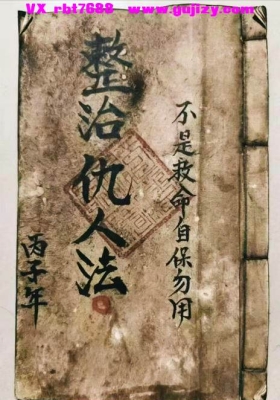 VX_rbt7688 www.gujizy.com
不是救命自保勿用
整治仇人法
丙子年